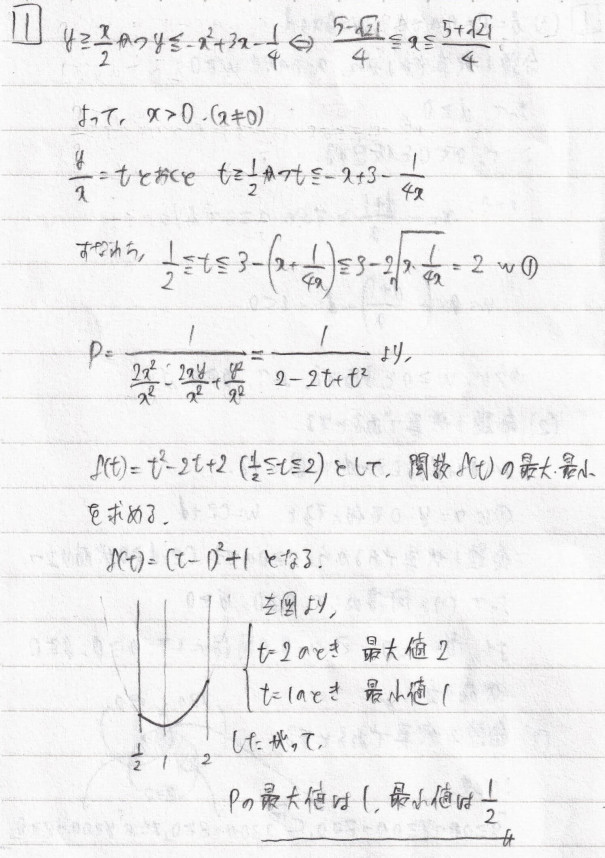 11 y≧x/2 かつ y≦-x²+3x-1/4 ⇔ (5-√21)/4≦x≦(5+√21)/4
よって, x>0. (x≠0)
y/x=tとおくと t≧1/2かつt≦-x+3-1/4x
すなわち, 1/2≦t≦3-(x+1/4x)≦3-2√(x・1/4x)=2 … ①
P=1/(2x²/x²-2xy/x²+y²/x²)=1/(2-2t+t²) より,
f(t)=t²-2t+2 (1/2≦t≦2) として, 関数f(t)の最大・最小
を求める.
f(t)=(t-1)²+1 となる.
左図より,
t=2のとき 最大値2
t=1のとき 最小値1
1/2 1 2
したがって,
Pの最大値は1, 最小値は1/2